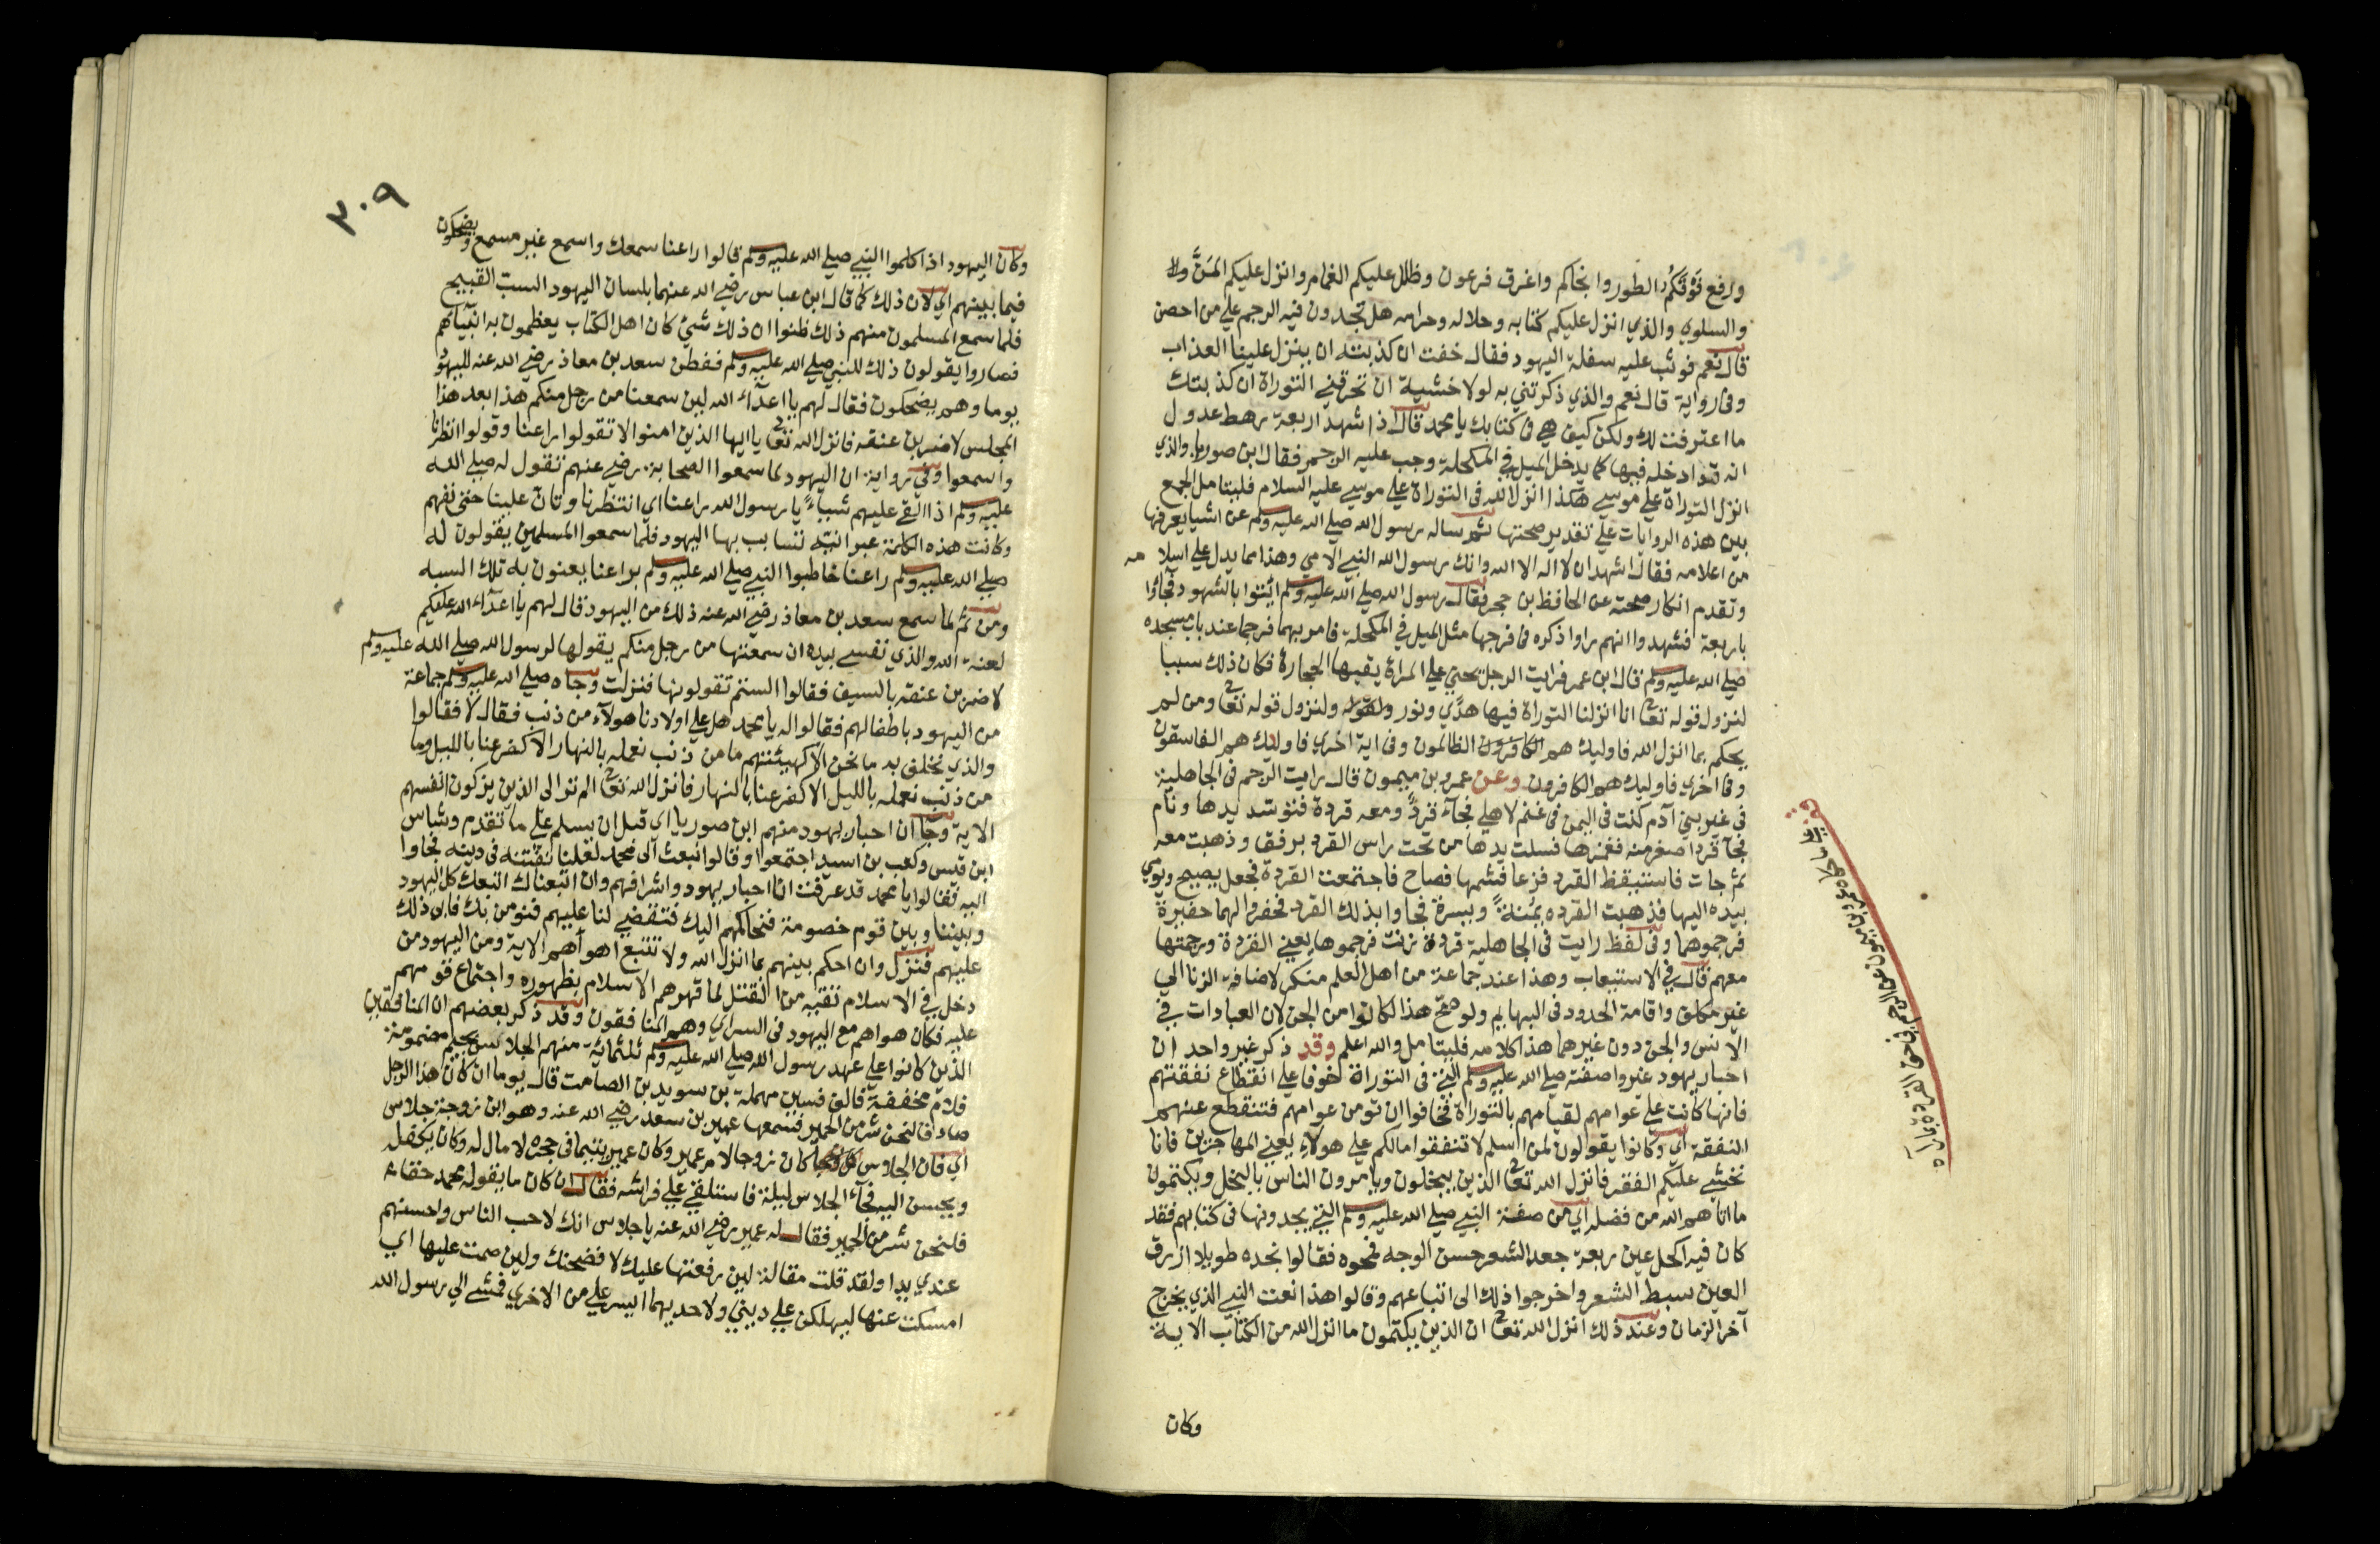 ورفع فوقكم الطور وانجاكم واغرق فرعون وظلل عليكم الغمام وانزل عليكم المنَّ ولا
والسلوي والذي انزل عليكم كتابه وحلاله وحرامه هل تجدون فيه الرجم علي من احصن
قال نعم فوثب عليه سفلة اليهود فقال خفت ان كذبته ان ينزل علينا العذاب
وفي رواية قال نعم والذي ذكرتني به لولا خشية ان تحرقني التوراة ان كذبتك
ما اعترفت لك ولكن كيف هي في كتابك يا محمد قال اذا شهد اربعة رهط عدول
انه قد ادخله فيها كما يدخل الميل في المكحلة وجب عليه الرجم فقال ابن صوريا والذي
انزل التوراة علي موسي هكذا انزل الله في التوراة علي موسي عليه السلام فليتامل الجمع
بين هذه الروايات علي تقدير صحتها ثم ساله رسول الله صلي الله عليه وسلم عن اشيا يعرفها
من اعلامه فقال اشهد ان لا اله الا الله وانك رسول الله النبي الامي وهذا مما يدل علي اسلامه
وتقدم انكار صحته عن الحافظ بن حجر فقال رسول الله صلي الله عليه وسلم ائتوا بالشهود فجاؤا
باربعة فشهدوا انهم راوا ذكره في فرجها مثل الميل في المكحلة فامر بهما فرجما عند باب مسجده
صلي الله عليه وسلم قال ابن عمر فرايت الرجل يحني علي المراة يقيها الحجارة فكان ذلك سببا
لنزول قوله تعا انا انزلنا التوراة فيها هدًي ونور ولقوله ولنزول قوله تعا ومن لم
يحكم بما انزل الله فاوليك هم الكافرون الظالمون وفي اية اخري فاوليك هم الفاسقون
وفي اخري فاوليك هم الكافرون وعن عمرو بن ميمون قال رايت الرجم في الجاهلية
في غير بني آدم كنت في اليمن في غنم لاهلي فجآء قردٌ ومعه قردة فتوسد يدها ونام
فجآ قرد اصغر منه فغمزها فسلت يدها من تحت راس القرد برفق وذهبت معه
ثم جات فاستيقظ القرد فزعا فشمها فصاح فاجتمعت القردة فجعل يصيح ويومي
بيده اليها فذهبت القرده يمنةً ويسرة فجاوا بذلك القرد فحفروا لهما حفيرة
فرجموهما وفي لفظ رايت في الجاهلية قردة زنت فرجموها يعني القردة ورجمتها
معهم قال في الاستيعاب وهذا عند جماعة من اهل العلم منكر لاضافة الزنا الي
غير مكلف واقامة الحدود في البهايم ولو صح هذا لكانوا من الجن لان العبادات في
الانس والجن دون غيرهما هذا كلامه فليتامل والله اعلم وقد ذكر غير واحد ان
احبار يهود غيروا صفته صلي الله عليه وسلم التي في التوراة خوفا علي انقطاع نفقتهم
فانها كانت علي عوامهم لقيامهم بالتوراة فخافوا ان تومن عوامهم فتنقطع عنهم
النفقة اي وكانوا يقولون لمن اسلم لا تنفقوا مالكم علي هولاء يعني المهاجرين فانا
نخشي عليكم الفقر فانزل الله تعا الذين يبخلون ويامرون الناس بالبخل ويكتمون
ما اتاهم الله من فضله اي من صفة النبي صلي الله عليه وسلم التي يجدونها في كتابهم فقد
كان فيه اكحل عين ربعة جعد الشعر حسن الوجه فمحوه فقالوا نجده طويلا ازرق
العين سبط الشعر واخرجوا ذلك الي اتباعهم وقالوا هذا نعت النبي الذي يخرج
آخر الزمان وعند ذلك انزل الله تعا ان الذين يكتمون ما انزل الله من الكتاب الاية
وكان
عمرو بن ميمون
٣٠٩
وكان اليهود اذا كلموا النبي صلي الله عليه وسلم قالوا راعنا سمعك واسمع غير مسمع ويضحكون
فيما بينهم اي لان ذلك كما قال ابن عباس رضي الله عنهما بلسان اليهود السب القبيح
فلما سمع المسلمون منهم ذلك ظنوا ان ذلك شئ كان اهل الكتاب يعظمون به انبياهم
فصاروا يقولون ذلك للنبي صلي الله عليه وسلم ففطن سعد بن معاذ رضي الله عنه لليهود
يوما وهم يضحكون فقال لهم يا اعدآء الله لين سمعنا من رجل منكم هذا بعد هذا
المجلس لاضربن عنقه فانزل الله تعا يا ايها الذين امنوا لا تقولوا راعنا وقولوا انظرنا
واسمعوا وفي رواية ان اليهود لما سمعوا الصحابة رضي عنهم تقول له صلي الله
عليه وسلم اذا القي عليهم شيياً يا رسول الله راعنا اي انتظرنا وتان علينا حتي نفهم
وكانت هذه الكلمة عبرانية تتسابب بها اليهود فلما سمعوا المسلمين يقولون له
صلي الله عليه وسلم راعنا خاطبوا النبي صلي الله عليه وسلم براعنا يعنون به تلك السبه
ومن ثم لما سمع سعد بن معاذ رضي الله عنه ذلك من اليهود قال لهم يا اعدآء الله عليكم
لعنة الله والذي نفسي بيده ان سمعتها من رجل منكم يقولها لرسول الله صلي الله عليه وسلم
لاضربن عنقه بالسيف فقالوا الستم تقولونها فنزلت وجاه صلي الله عليه وسلم جماعة
من اليهود باطفالهم فقالوا له يا محمد هل علي اولادنا هولآء من ذنب فقال لا فقالوا
والذي نحلف به ما نحن الا كهيئتهم ما من ذنب نعمله بالنهار الا كفر عنا بالليل وما
من ذنب نعمله بالليل الا كفر عنا بالنهار فانزل الله تعا الم تر الي الذين يزكون انفسهم
الاية وجا ان احبار يهود منهم ابن صوريا اي قبل ان يسلم علي ما تقدم وشاس
ابن قيس وكعب بن اسيد اجتمعوا وقالوا نبعث الي محمد لعلنا نفتنه في دينه فجاوا
اليه فقالوا يا محمد قد عرفت انا احبار يهود واشرافهم وان اتبعناك اتبعك كل اليهود
وبيننا وبين قوم خصومة فنحاكمهم اليك فتقضي لنا عليهم فنومن بك فابي ذلك
عليهم فنزل وان احكم بينهم بما انزل الله ولا تتبع اهوآهم الاية ومن اليهود من
دخل في الاسلام تقية من القتل لما قهرهم الاسلام بظهوره واجتماع قومهم
عليه فكان هواهم مع اليهود في السراي وهم المنافقون وقد ذكر بعضهم ان المنافقين
الذين كانوا علي عهد رسول الله صلي الله عليه وسلم ثلثماية منهم الجلاس بجيم مضمومة
فلام مخففة فالف فسين مهملة بن سويد بن الصامت قال يوما ان كان هذا الرجل
صادقا لنحن شر من الحمير فسمعها عمير بن سعد رضي الله عنه وهو ابن زوجة جلاس
اي فان الجلاس كان زوجا لام عمير وكان عمير يتيما في حجره لا مال له وكان يكفله
ويحسن اليه فجآء الجلاس ليلة فاستلقي علي فراشه فقال ان كان ما يقوله محمد حقا
فلنحن شر من الحمير فقال له عمير رضي الله عنه يا جلاس انك لاحب الناس واحسنهم
عندي يدا ولقد قلت مقالة لين رفعتها عليك لافضحنك ولين صمت عليها اي
امسكت عنها ليهلكن علي ديني ولاحديهما ايسر علي من الاخري فمشي الي رسول الله